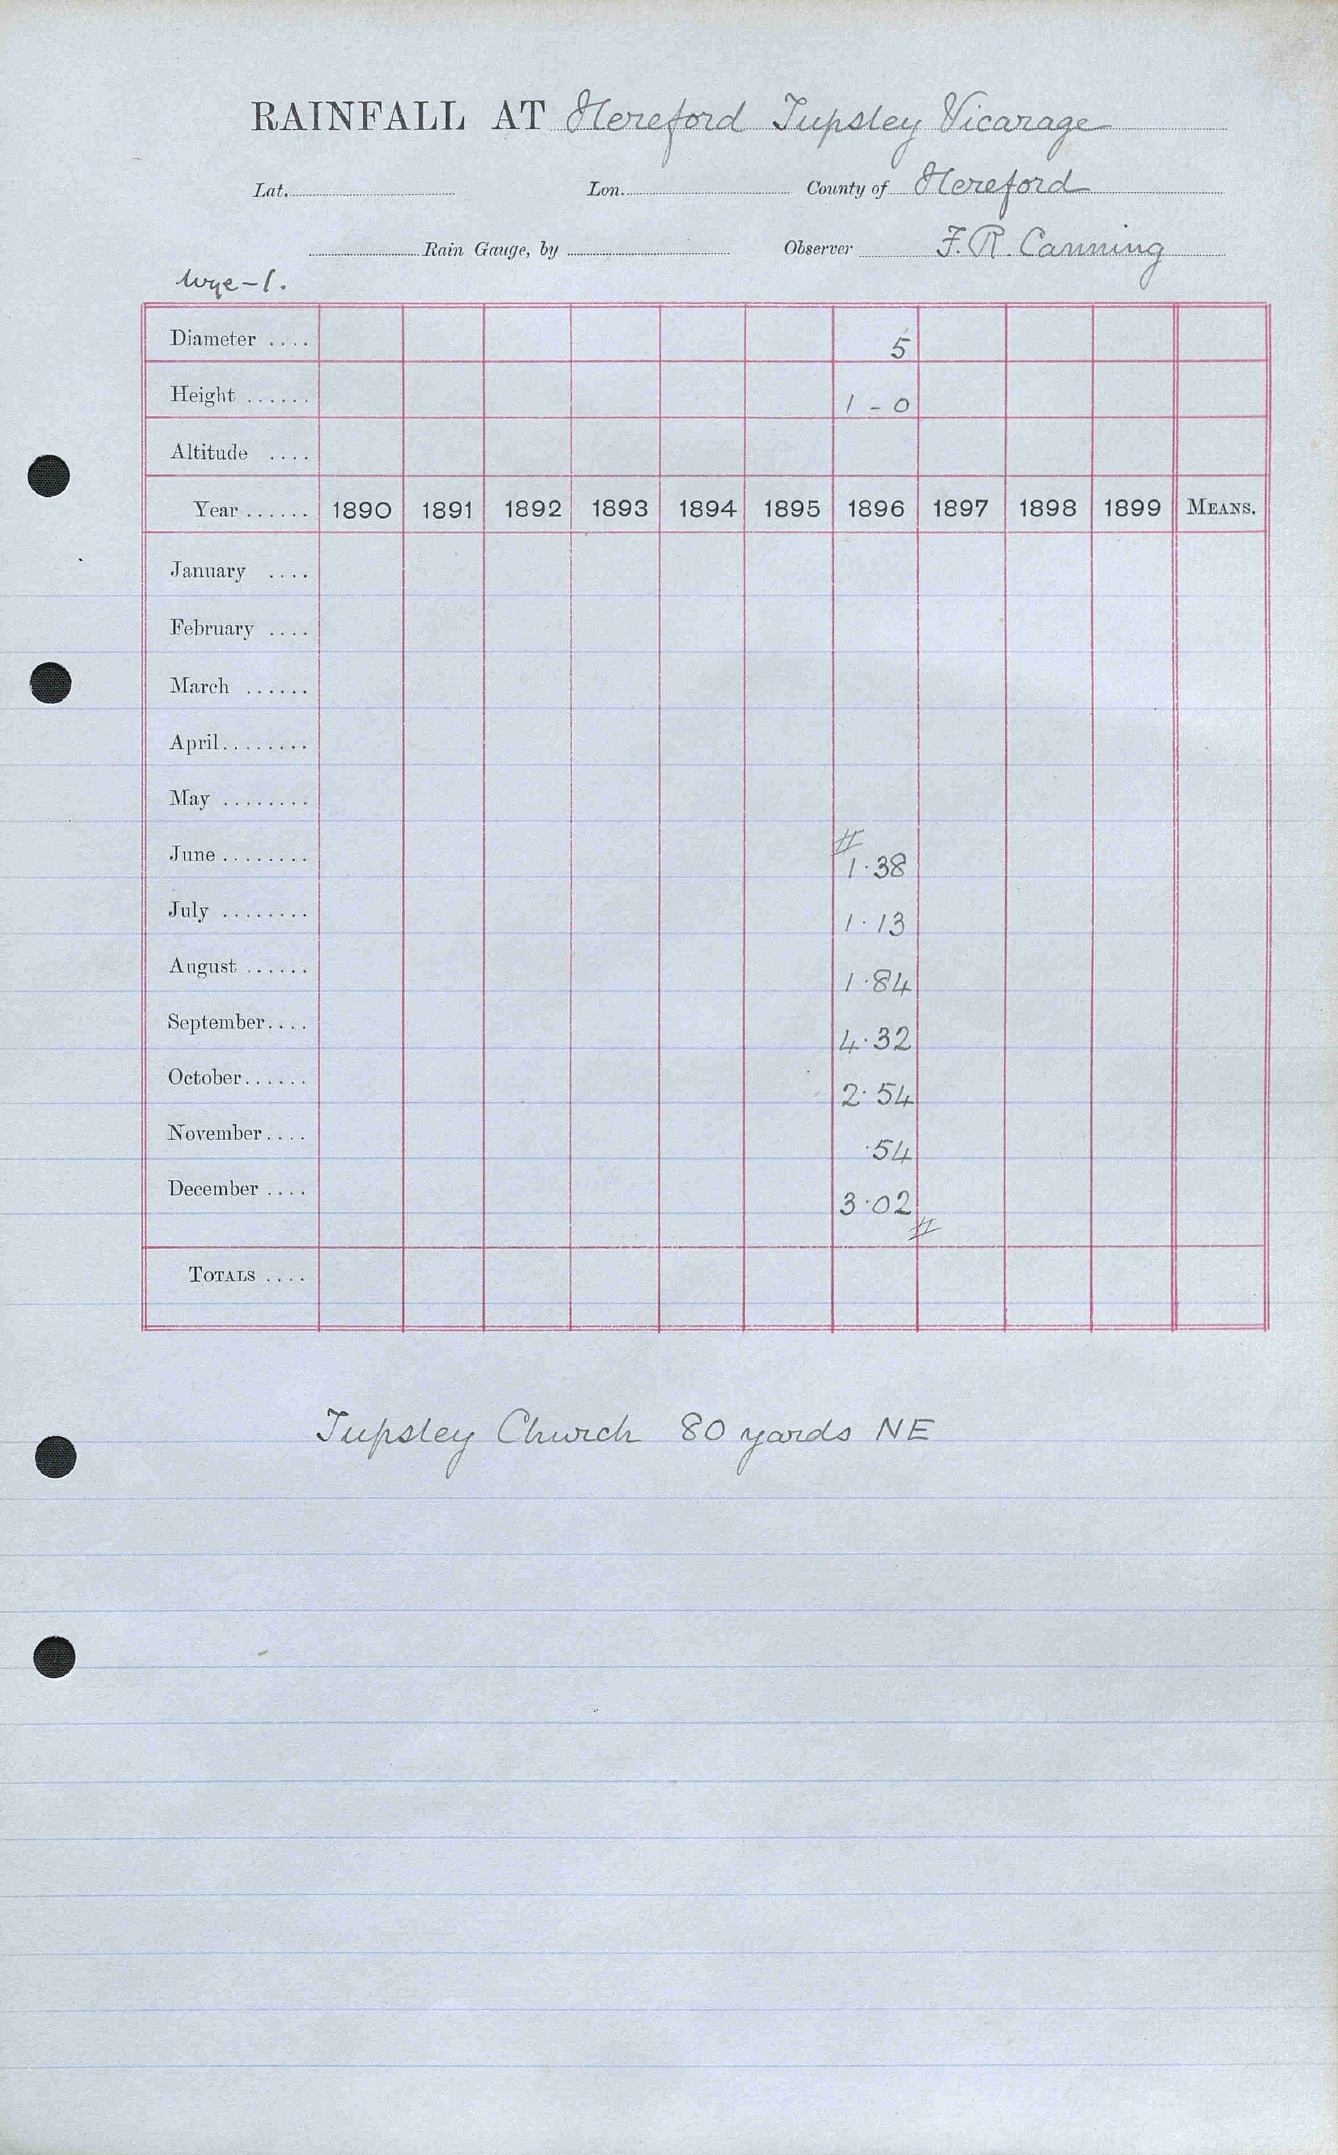 RAINFALL AT Hereford Tupsley Vicarage
Lat. Lon. County of Hereford
Rain Gauge, by Observer F. R. Canning
Wye-1.
Diameter .... 5
Height ...... 1 - 0
Altitude ....
Year ...... 1890 1891 1892 1893 1894 1895 1896 1897 1898 1899 MEANS.
January ....
February ....
March ......
April ........
May ........
June ........ # 1.38
July ........ 1.13
August ...... 1.84
September .... 4.32
October ...... 2.54
November .... .54
December .... 3.02 #
TOTALS ....
Tupsley Church 80 yards NE